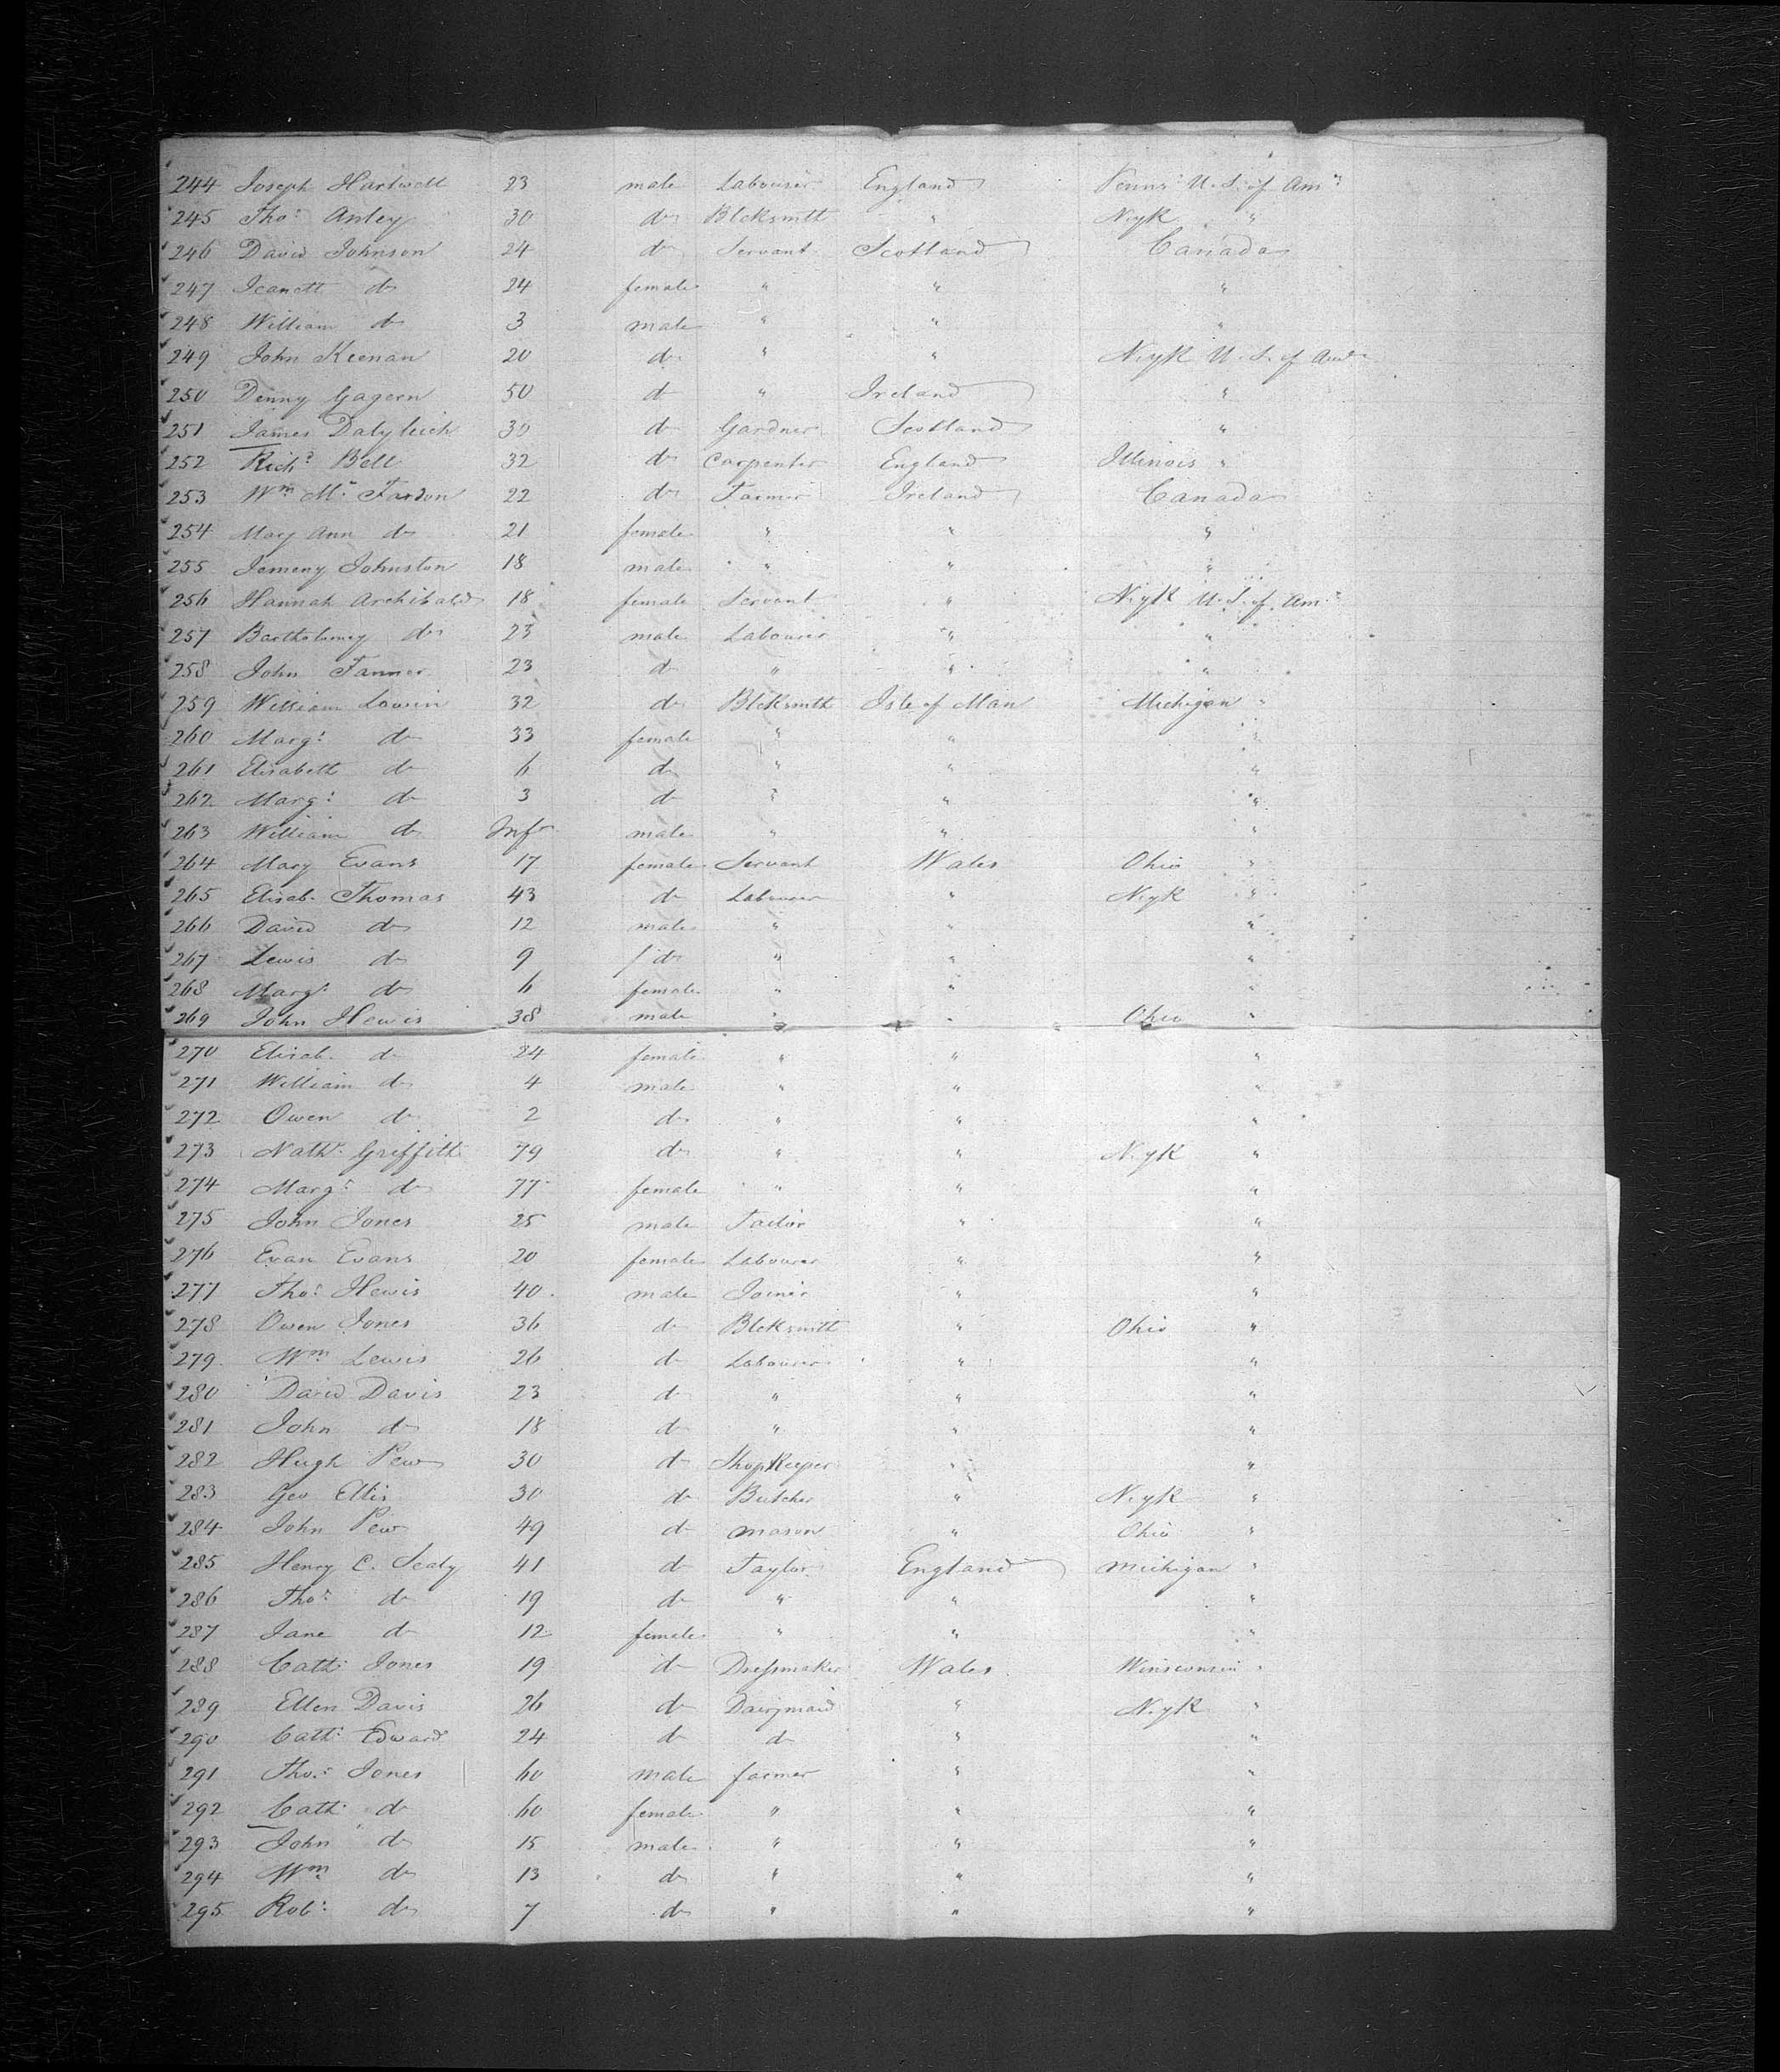 244 Joseph Hartwell 23 male Labourer England Penns: U.S. of Am:
245 Tho: Anley 30 do Blcksmith " N.yk "
246 David Johnson 24 do Servant Scotland Canada
247 Jeanett do 24 female " " "
248 William do 3 male " " "
249 John Keenan 20 do " " N.yk U.S. of Am:
250 Denny Gageen 50 do " Ireland "
251 James 30 do Gardner Scotland "
252 Rich: Bell 32 do Carpenter England Illinois "
253 Wm Mc Fardon 22 do Farmer Ireland Canada
254 Mary Ann do 21 female " " "
255 Jemeny Johnston 18 male " " "
256 Hannah Archibald 18 female Servant " N.yk U.S. of Am:
257 Bartholomey do 23 male Labourer " "
258 John Fanner 23 do " " "
259 William Lowin 32 do Blcksmith Isle of Man Michigan "
260 Marg: do 33 female " " "
261 Elisabeth do 6 do " " "
262 Marg: do 3 do " " "
263 William do Inft male " " "
264 Mary Evans 17 female Servant Wales Ohio "
265 Elisab. Thomas 43 do Labourer " N.yk "
266 David do 12 male " " "
267 Lewis do 9 do " " "
268 Marg: do 6 female " " "
269 John Hewis 38 male " " Ohio "
270 Elisab. do 24 female " " "
271 William do 4 male " " "
272 Owen do 2 do " " "
273 Nath: Griffith 79 do " " N.yk "
274 Marg: do 77 female " " "
275 John Jones 25 male Tailor " "
276 Evan Evans 20 female Labourer " "
277 Tho: Hewis 40 male Joiner " "
278 Owen Jones 36 do Blcksmith " Ohio "
279 Wm Lewis 26 do Labourer " "
280 David Davis 23 do " " "
281 John do 18 do " " "
282 Hugh Pew 30 do ShopKeeper " "
283 Geo Ellis 30 do Butcher " N.yk "
284 John Pew 49 do mason " Ohio "
285 Henry C. Sealy 41 do Taylor England Michigan "
286 Tho: do 19 do " " "
287 Jane do 12 female " " "
288 Cath: Jones 19 do Dressmaker Wales Winsconsin "
289 Ellen Davis 26 do Dairymaid " N.yk "
290 Cath: Edward 24 do do " "
291 Tho: Jones 60 male farmer " "
292 Cath: do 60 female " " "
293 John do 15 male " " "
294 Wm do 13 do " " "
295 Rob: do 7 do " " "